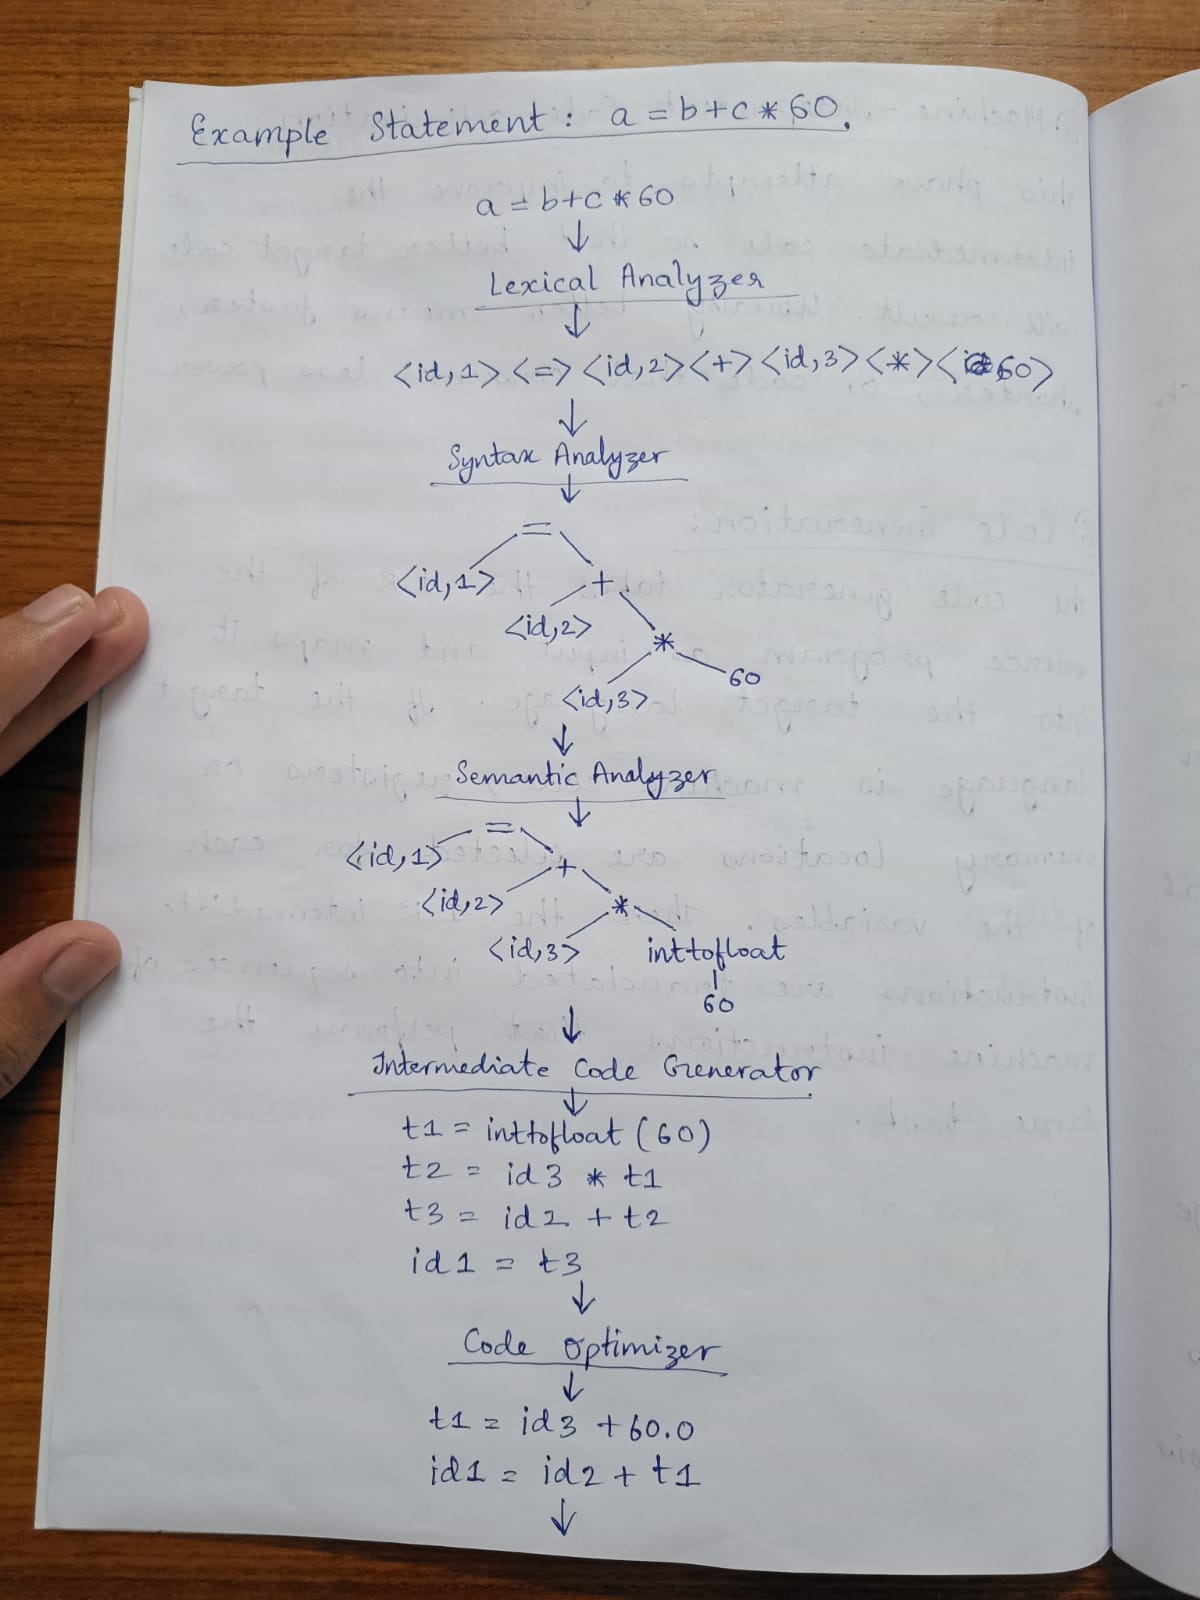 Example Statement : a = b+c * 60.
a = b+c * 60
↓
Lexical Analyzer
↓
<id,1> <=> <id,2> <+> <id,3> <*> <60>
↓
Syntax Analyzer
↓
=
<id,1> +
<id,2> *
60
<id,3>
↓
Semantic Analyzer
↓
=
<id,1> +
<id,2> *
<id,3> inttofloat
60
↓
Intermediate Code Generator
↓
t1 = inttofloat (60)
t2 = id3 * t1
t3 = id2 + t2
id1 = t3
↓
Code Optimizer
↓
t1 = id3 + 60.0
id1 = id2 + t1
↓